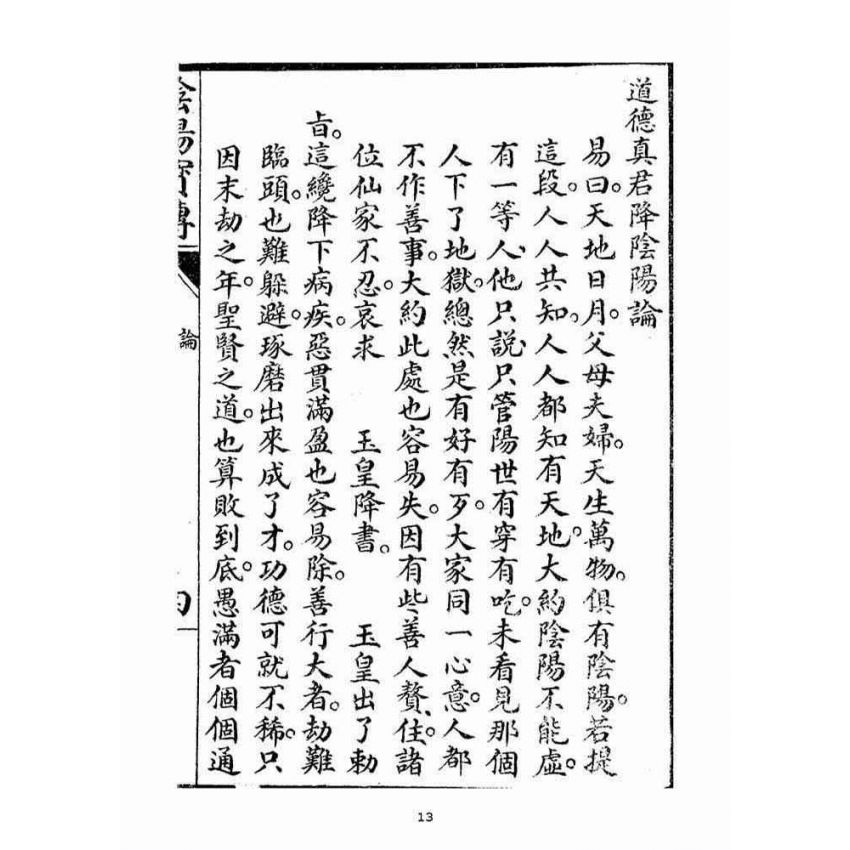 道德真君降陰陽論
易曰。天地日月。父母夫婦。天生萬物。俱有陰陽。若提
這段。人人共知。人人都知有天地。大約陰陽不能虛。
有一等人。他只說。只管陽世有穿有吃。未看見那個
人下了地獄。總然是有好有歹。大家同一心意。人都
不作善事。大約此處也容易失。因有些善人贅住。諸
位仙家不忍。哀求 玉皇降書。 玉皇出了勅
旨。這纔降下病疾。惡貫滿盈也容易除。善行大者。劫難
臨頭。也難躲避。琢磨出來成了才。功德可就不稀。只
因末劫之年。聖賢之道。也算敗到底。愚滿者個個通
陰陽寶傳
論
13